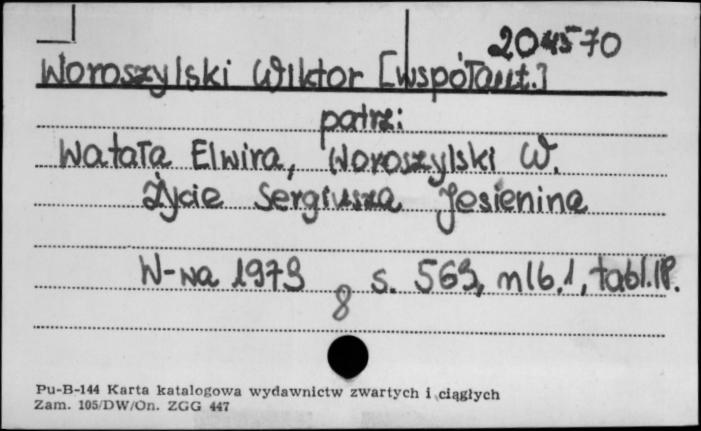 204570
Woroszylski Wiktor [współaut.]
patrz:
Watała Elwira, Woroszylski W.
Życie Sergiusza Jesienina
W-wa 1973 s. 563, nlb. 1, tabl.
8
Pu-B-144 Karta katalogowa wydawnictw zwartych i ciągłych
Zam. 105/DW/On. ZGG 447